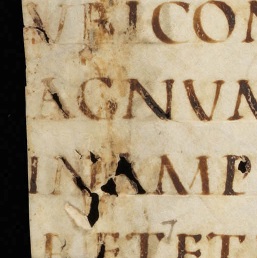 VRICON
AGNVM
INAMP
RETET